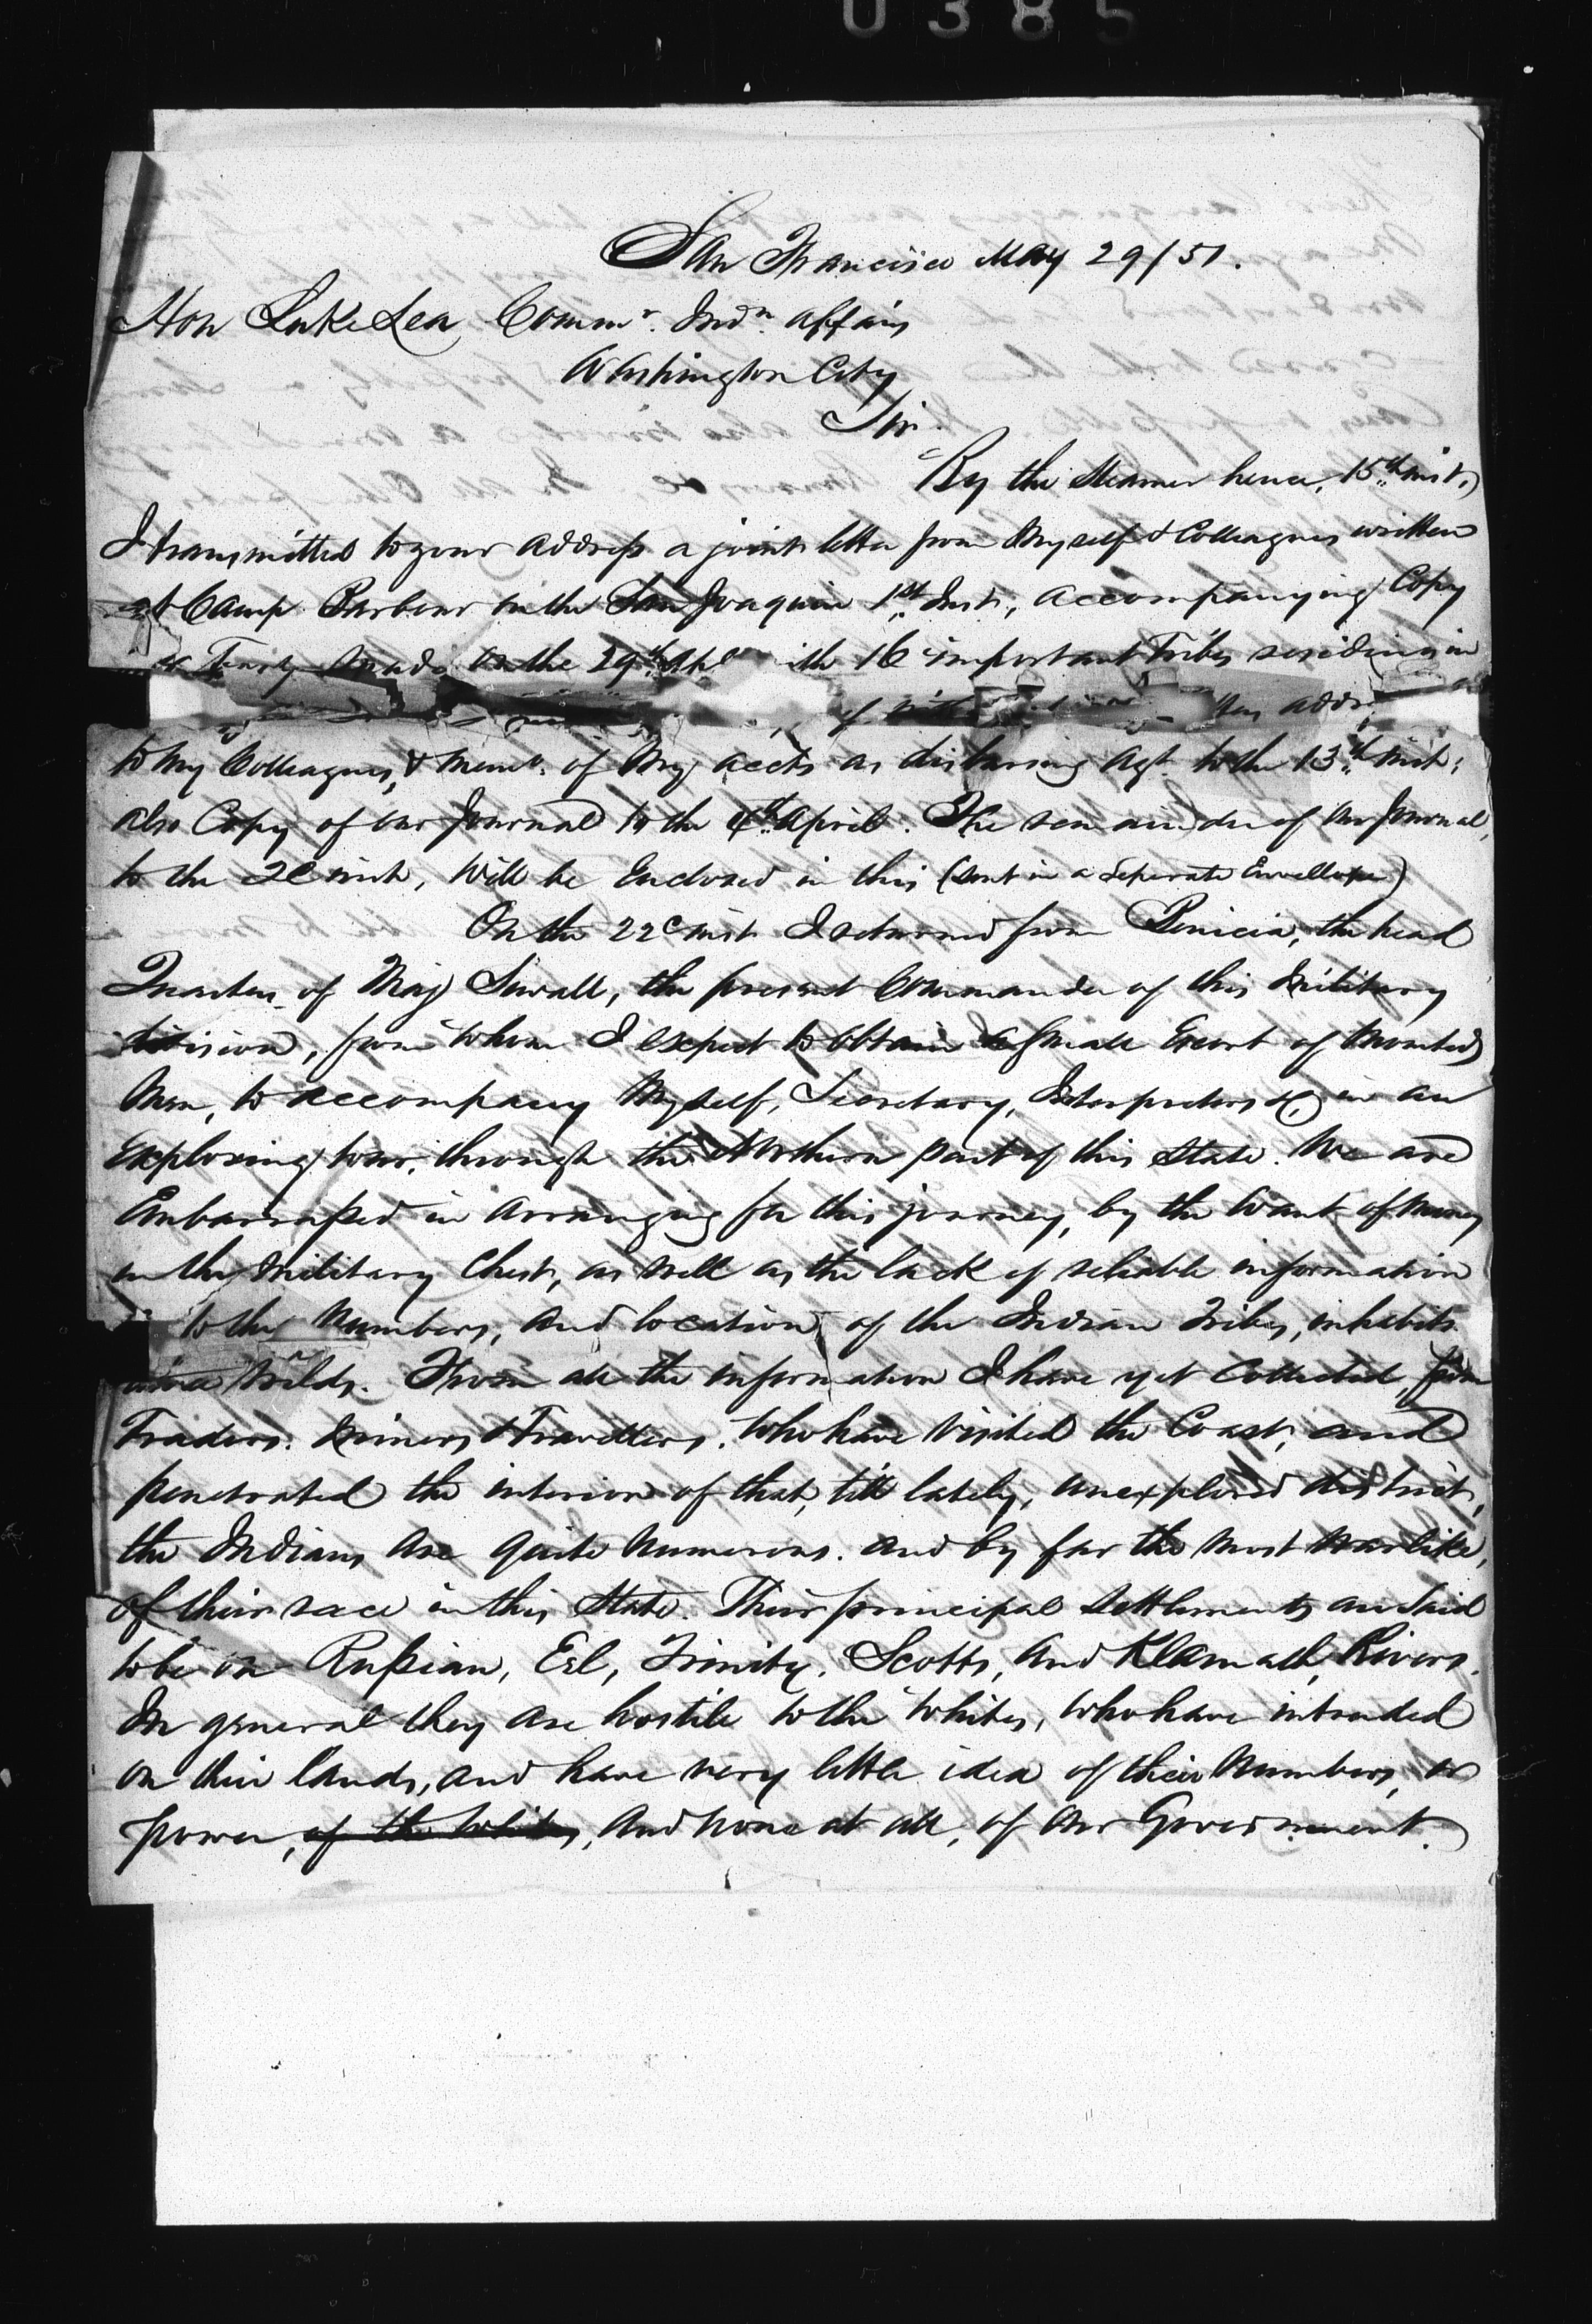 0385
San Francisco May 29/51.
Hon Luke Lea Commr. Indn. affairs
Washington City
Sir.
By the Steamer hence, 15th inst,
I transmitted to your address a joint letter from Myself & Colleagues written
at Camp Barbour on the San Joaquin 1st. Inst., accompanying Copy
Treaty made on the 29th. with 16 important Tribes residing in
of addr
to my Colleagues, & memo. of my accts as disbursing agt. to the 13th inst;
also Copy of our Journal to the 4th April. The remainder of our Journal,
to the 20 inst, will be Enclosed in this (Sent in a Seperate Envellope)
On the 22d inst I returned from Benicia, the head
Quarters of Maj Sewall, the present Commander of this Military
division, from whom I expect to obtain a Small Escort of Mounted
Men, to accompany Myself, Secretary, Interpreters &c, in an
Exploring tour, through the Northern part of this State. We are
Embarrassed in arranging for this journey, by the want of money
in the Military Chest, as well as the lack of reliable information
to the Numbers, and location of the Indian Tribes, inhabits
wilds. From all the information I have yet Collected, from
Traders. Miners & Travellers. who have visited the Coast, and
penetrated the interior of that, till lately, unexplored district,
the Indians are quite numerous. and by far the most warlike,
of their race in this State. Their principal Settlements are Said
to be on Russian, Eel, Trinity, Scotts, and Klamath, Rivers.
In general they are hostile to the whites, who have intruded
on their lands, and have very little idea of their Numbers, or
power, of the whites, and none at all, of our Government.